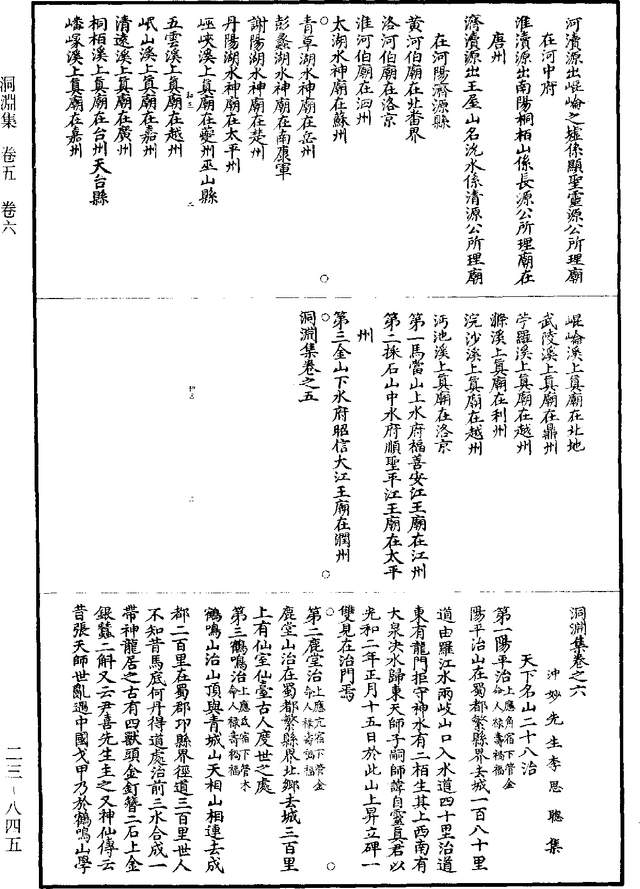 河瀆源出崐崘之墟係顯聖靈源公所理廟
在河中府
淮瀆源出南陽桐栢山係長源公所理廟在
唐州
濟瀆源出王屋山名沇水係清源公所理廟
在河陽濟源縣
黃河伯廟在北番界
洛河伯廟在洛京
淮河伯廟在泗州
太湖水神廟在蘇州
青草湖水神廟在岳州
彭蠡湖水神廟在南康軍
謝陽湖水神廟在楚州
丹陽湖水神廟在太平州
巫峽溪上真廟在夔州巫山縣
五雲溪上真廟在越州
岷山溪上真廟在嘉州
清遠溪上真廟在廣州
桐栢溪上真廟在台州天台縣
嶓冢溪上真廟在嘉州
崐崘溪上真廟在北地
武陵溪上真廟在鼎州
苧羅溪上真廟在越州
滁溪上真廟在利州
浣沙溪上真廟在越州
沔池溪上真廟在洛京
第一馬當山上水府福善安江王廟在江州
第二採石山中水府順聖平江王廟在太平
州
第三金山下水府昭信大江王廟在潤州
洞淵集卷之五
洞淵集卷之六
沖妙先生李思聰集
天下名山二十八治
第一陽平治上應角宿下管金令人祿壽福
陽平治山在蜀郡繁縣界去城一百八十里
道由羅江水兩歧山口入水道四十里治道
東有龍門拒守神水有二栢生其上西南有
大泉決水歸東天師子嗣師諱自靈真君以
光和二年正月十五日於此山上昇立碑一
雙見在治門焉
第二鹿堂治上應亢宿下管金令人祿壽福
鹿堂山治在蜀郡繁縣界北鄉去城三百里
上有仙室仙臺古人度世之處
第三鶴鳴治上應氐宿下管木令人祿壽福
鶴鳴山治山頂與青城山天相山相連去成
都二百里在蜀郡邛縣界徑道三百里世人
不知昔馬底何丹得道處治前三水合成一
帶神龍居之古有四獸頭金釘簪二石上金
銀蠶二斛又云尹喜先生主之又神仙傳云
昔張天師世亂遇中國戈甲乃於鶴鳴山學
洞淵集 卷五 卷六
二三－八四五